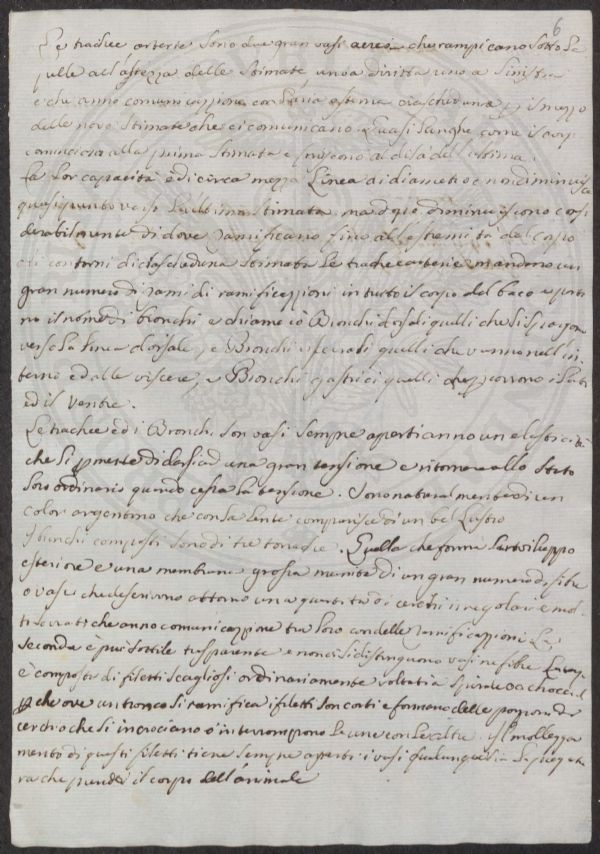 6
Le trachee arterie sono due gran vasi aerei che rampicano sotto la
pelle all'altezza delle stimate, uno a diritta uno a sinistra
e che anno comunicazzione con l'aria esterna ciascheduna p il mezzo
delle nove stimate che ci comunicano quasi
cominciano alla prima stimata e finiscono al di là dell'ultima.
La lor capacità è di circa mezza Linea di diametro e non diminuisce
quasi punto verso l'ultima stimata, ma doppo diminuiscono consi
derabilmente di dove ramificano sino all'estremità del corpo
contorni di ciascheduna stimata le trachee arterie mandono un
gran numero di rami di ramificazzioni in tutto il corpo del baco e porta
no il nome di bronchi e chiamo iò Bronchi dorsali quelli che si spargono
verso la linea dorsale, e Bronchi quelli che vanno nell'in
terno ed alle viscere, e Bronchi gastrici quelli che pcorrono i lati
ed il ventre.
Le trachee ed i Bronchi son vasi sempre aperti anno un elasticità
che si pmette di darsi ad una gran tensione e ritornare allo stato
loro ordinario quando cessa la tensione. Sono naturalmente di un
color argentino che con la lente comparisce di un bel lustro
I bronchi composti sono di tre tonache. Quella che forma l'inviluppo
esteriore è una membrana grossa munita di un gran numero di fibre
o vasi che descrivono attorno una quantità di cerchi irregolari e mol
ti serrati che anno comunicazzione tra loro con delle ramificazzioni La
seconda è più sottile trasparente e non ci si distinguono vasi ne fibre La terza
è composta di filetti scagliosi ordinariamente voltati a spirale o a chiocciola
pche ove un tronco si ramifica i filetti son corti e formano delle porzioni di
cerchio che si incrociano o interrompono le une con le altre. Il molleggia
mento di questi filetti tiene sempre aperti i vasi qualunque sia la piegatu
ra che prende il corpo dell'animale